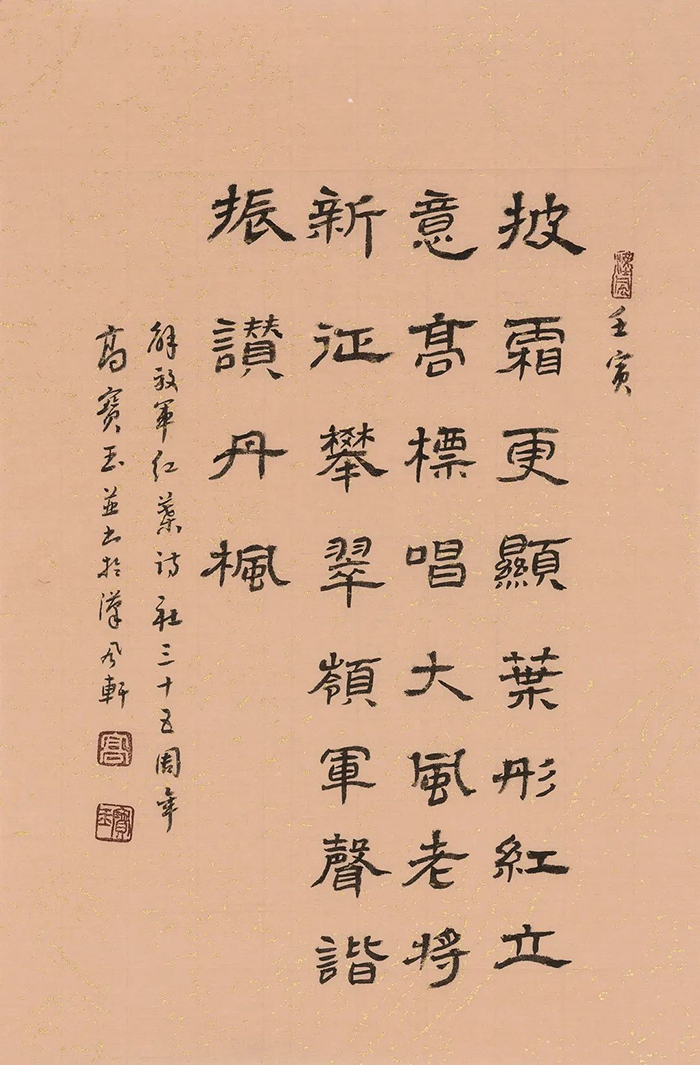 壬寅
披霜更顯葉彤紅立
意髙標唱大風老將
新征攀翠嶺軍聲諧
振讃丹楓
解放軍红葉诗社三十五周年
高寳玉並书於漢风軒